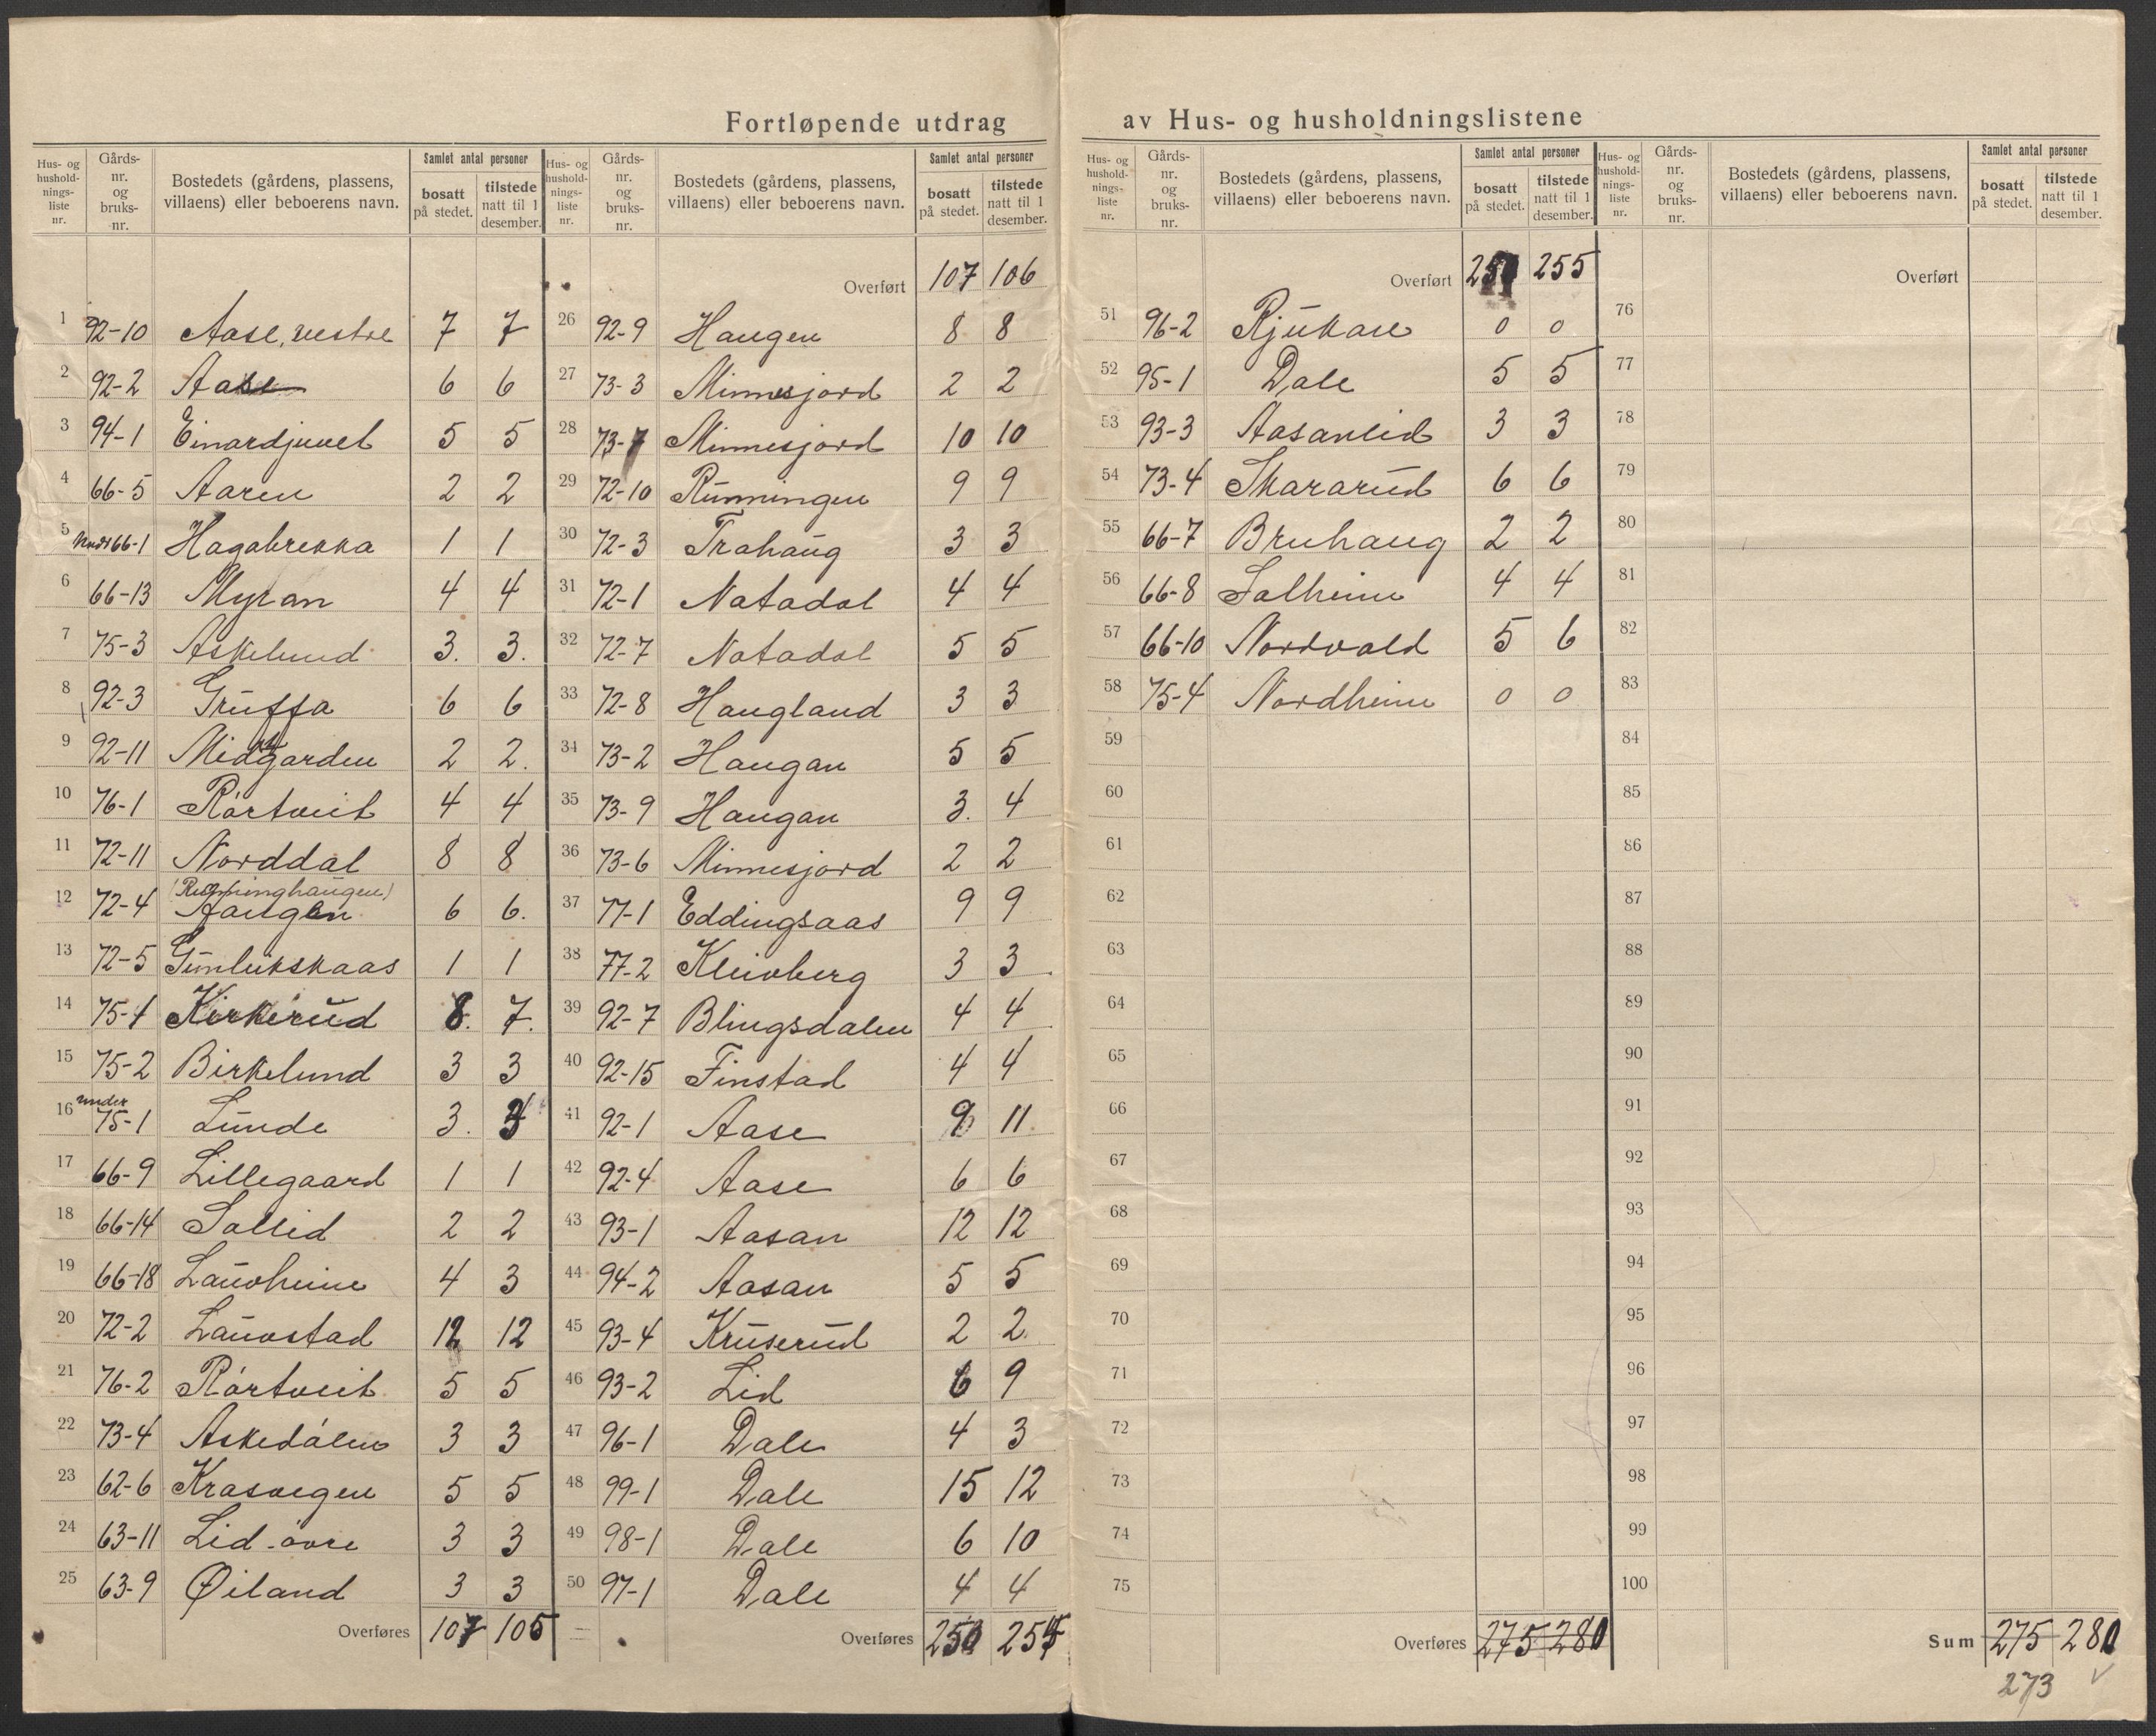 Fortløpende utdrag av Hus- og husholdningslistene
Hus- og hushold-nings-liste nr. Gårds-nr. og bruks-nr. Bostedets (gårdens, plassens, villaens) eller beboerens navn. Samlet antal personer bosatt på stedet. tilstede natt til 1 desember.
1 92-10 Aase, vestre 7 7
2 92-2 Aase 6 6
3 94-1 Einardjuvet 5 5
4 66-5 Aaren 2 2
5 66-1 Hagabrekka 1 1
6 66-13 Myran 4 4
7 75-3 Askelund 3. 3.
8 92-3 Gruffa 6 6
9 92-11 Midgarden 2 2.
10 76-1 Rörtveit 4 4
11 72-11 Norddal 8 8
(Rønninghaugen)
12 72-4 Haugen 6 6.
13 72-5 Gunlukskaas 1 1
14 75-1 Kirkerud 8. 7.
15 75-2 Birkelund 3 3
under
16 75-1 Lunde 3.
17 66-9 Lillegaard 1 1
18 66-14 Sollid 2 2
19 66-18 Lauvheim 4 3
20 72-2 Lauvstad 12 12
21 76-2 Rörtveit 5 5
22 73-4 Askedalen 3 3
23 62-6 Krasvegen 5 5
24 63-11 Lid-övre 3 3
25 63-9 Øiland 3 3
Overføres 107 105
Hus- og hushold-nings-liste nr. Gårds-nr. og bruks-nr. Bostedets (gårdens, plassens, villaens) eller beboerens navn. Samlet antal personer bosatt på stedet. tilstede natt til 1 desember.
Overført 107 106
26 92-9 Haugen 8 8
27 73-3 Minnesjord 2 2
28 73-7 Minnesjord 10 10
29 72-10 Rünningen 9 9
30 72-3 Trahaug 3 3
31 72-1 Natadal 4 4
32 72-7 Natadal 5 5
33 72-8 Haugland 3 3
34 73-2 Haugan 5 5
35 73-9 Haugan 3. 4
36 73-6 Minnesjord 2 2
37 77-1 Eddingsaas 9 9
38 77-2 Kleivberg 3 3
39 92-7 Blingsdalen 4 4
40 92-15 Finstad 4 4
41 92-1 Aase 9 11.
42 92-4 Aase 6 6
43 93-1 Aasan 12 12
44 94-2 Aasan 5 5
45 93-4 Kruserud 2 2
46 93-2 Lid 6 9
47 96-1 Dale 4 3
48 99-1 Dale 15 12
49 98-1 Dale 6 10
50 97-1 Dale 4 4
Overføres 250
Hus- og hushold-nings-liste nr. Gårds-nr. og bruks-nr. Bostedets (gårdens, plassens, villaens) eller beboerens navn. Samlet antal personer bosatt på stedet. tilstede natt til 1 desember.
Overført 255
51 96-2 Rjukan 0 0
52 95-1 Dale 5 5
53 93-3 Aasanlid 3 3
54 73-4 Skararud 6 6
55 66-7 Bruhaug 2 2
56 66-8 Solheim 4 4
57 66-10 Nordvald 5 6
58 75-4 Nordheim 0 0
59
60
61
62
63
64
65
66
67
68
69
70
71
72
73
74
75
Overføres 275 280
Hus- og hushold-nings-liste nr. Gårds-nr. og bruks-nr. Bostedets (gårdens, plassens, villaens) eller beboerens navn. Samlet antal personer bosatt på stedet. tilstede natt til 1 desember.
Overført
76
77
78
79
80
81
82
83
84
85
86
87
88
89
90
91
92
93
94
95
96
97
98
99
100
Sum 275 280
273